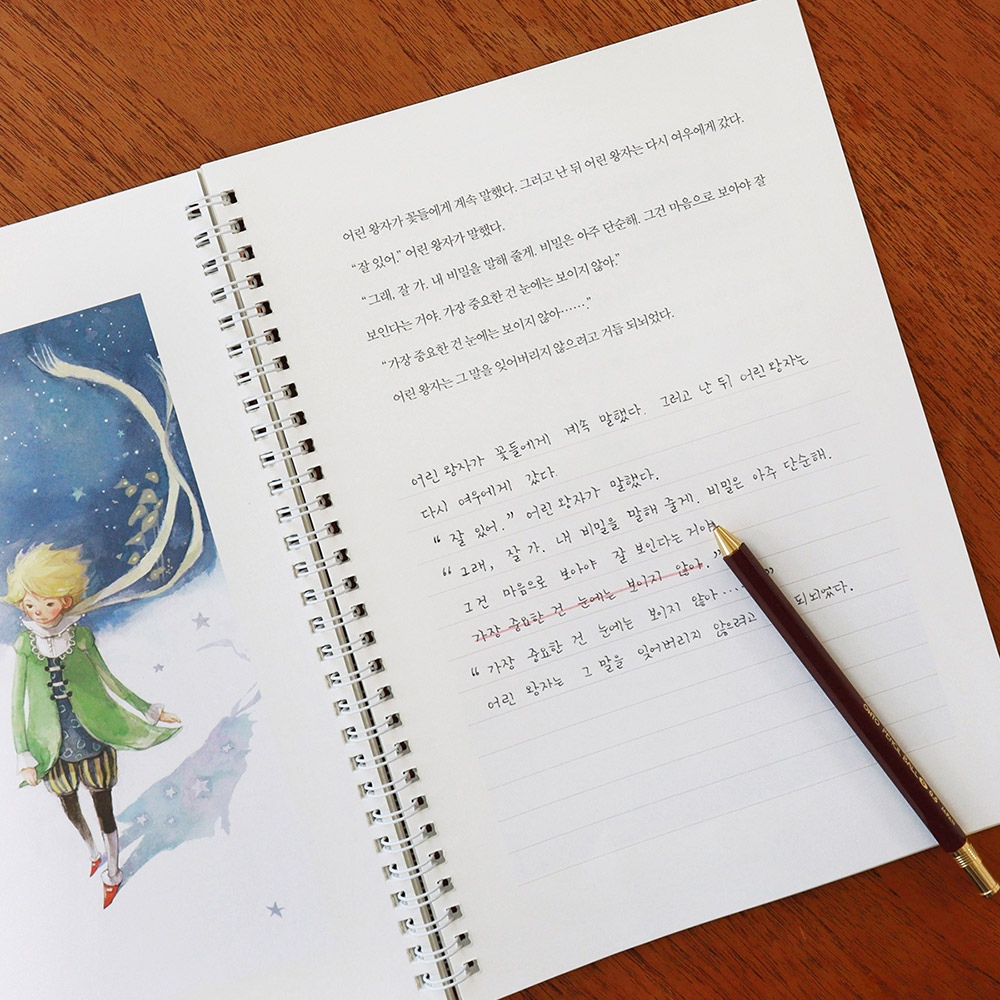 어린 왕자가 꽃들에게 계속 말했다. 그러고 난 뒤 어린 왕자는 다시 여우에게 갔다.
“잘 있어.” 어린 왕자가 말했다.
“그래, 잘 가. 내 비밀을 말해 줄게. 비밀은 아주 단순해. 그건 마음으로 보아야 잘
보인다는 거야. 가장 중요한 건 눈에는 보이지 않아.”
“가장 중요한 건 눈에는 보이지 않아……”
어린 왕자는 그 말을 잊어버리지 않으려고 거듭 되뇌었다.
어린 왕자가 꽃들에게 계속 말했다. 그러고 난 뒤 어린 왕자는
다시 여우에게 갔다.
“잘 있어.” 어린 왕자가 말했다.
“그래, 잘 가. 내 비밀을 말해 줄게. 비밀은 아주 단순해.
그건 마음으로 보아야 잘 보인다는 거야
가장 중요한 건 눈에는 보이지 않아.”
“가장 중요한 건 눈에는 보이지 않아...”
어린 왕자는 그 말을 잊어버리지 않으려고 되뇌었다.
OHTO PENCIL BALL 0.5